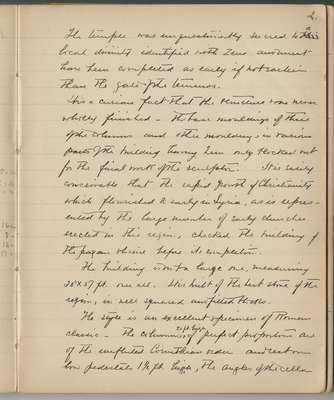 2.
The temple was unquestionably sacred to a
local divinity identified with Zeus and must
have been completed as early if not earlier
than the gate of the temenos.
It is a curious fact that the structure was never
wholly finished - the base mouldings of three
of the columns and other mouldings in various
parts of the building having been only blocked out
for the final work of the sculptor. It is easily
conceivable that the rapid growth of Christianity
which flourished so early in Syria, as is expres-
ented by the large number of early churches
erected in this region, checked the building of
the pagan shrine before its completion.
The building is not a large one, measuring
38 x 57 ft. over all. It is built of the best stone of the
region, in well squared and fitted blocks.
The style is an excellent specimen of Roman
classic - The columns of perfect proportions are
of the unfluted Corinthian order and rest on
low pedestals 1½ ft. high, the angles of the cella